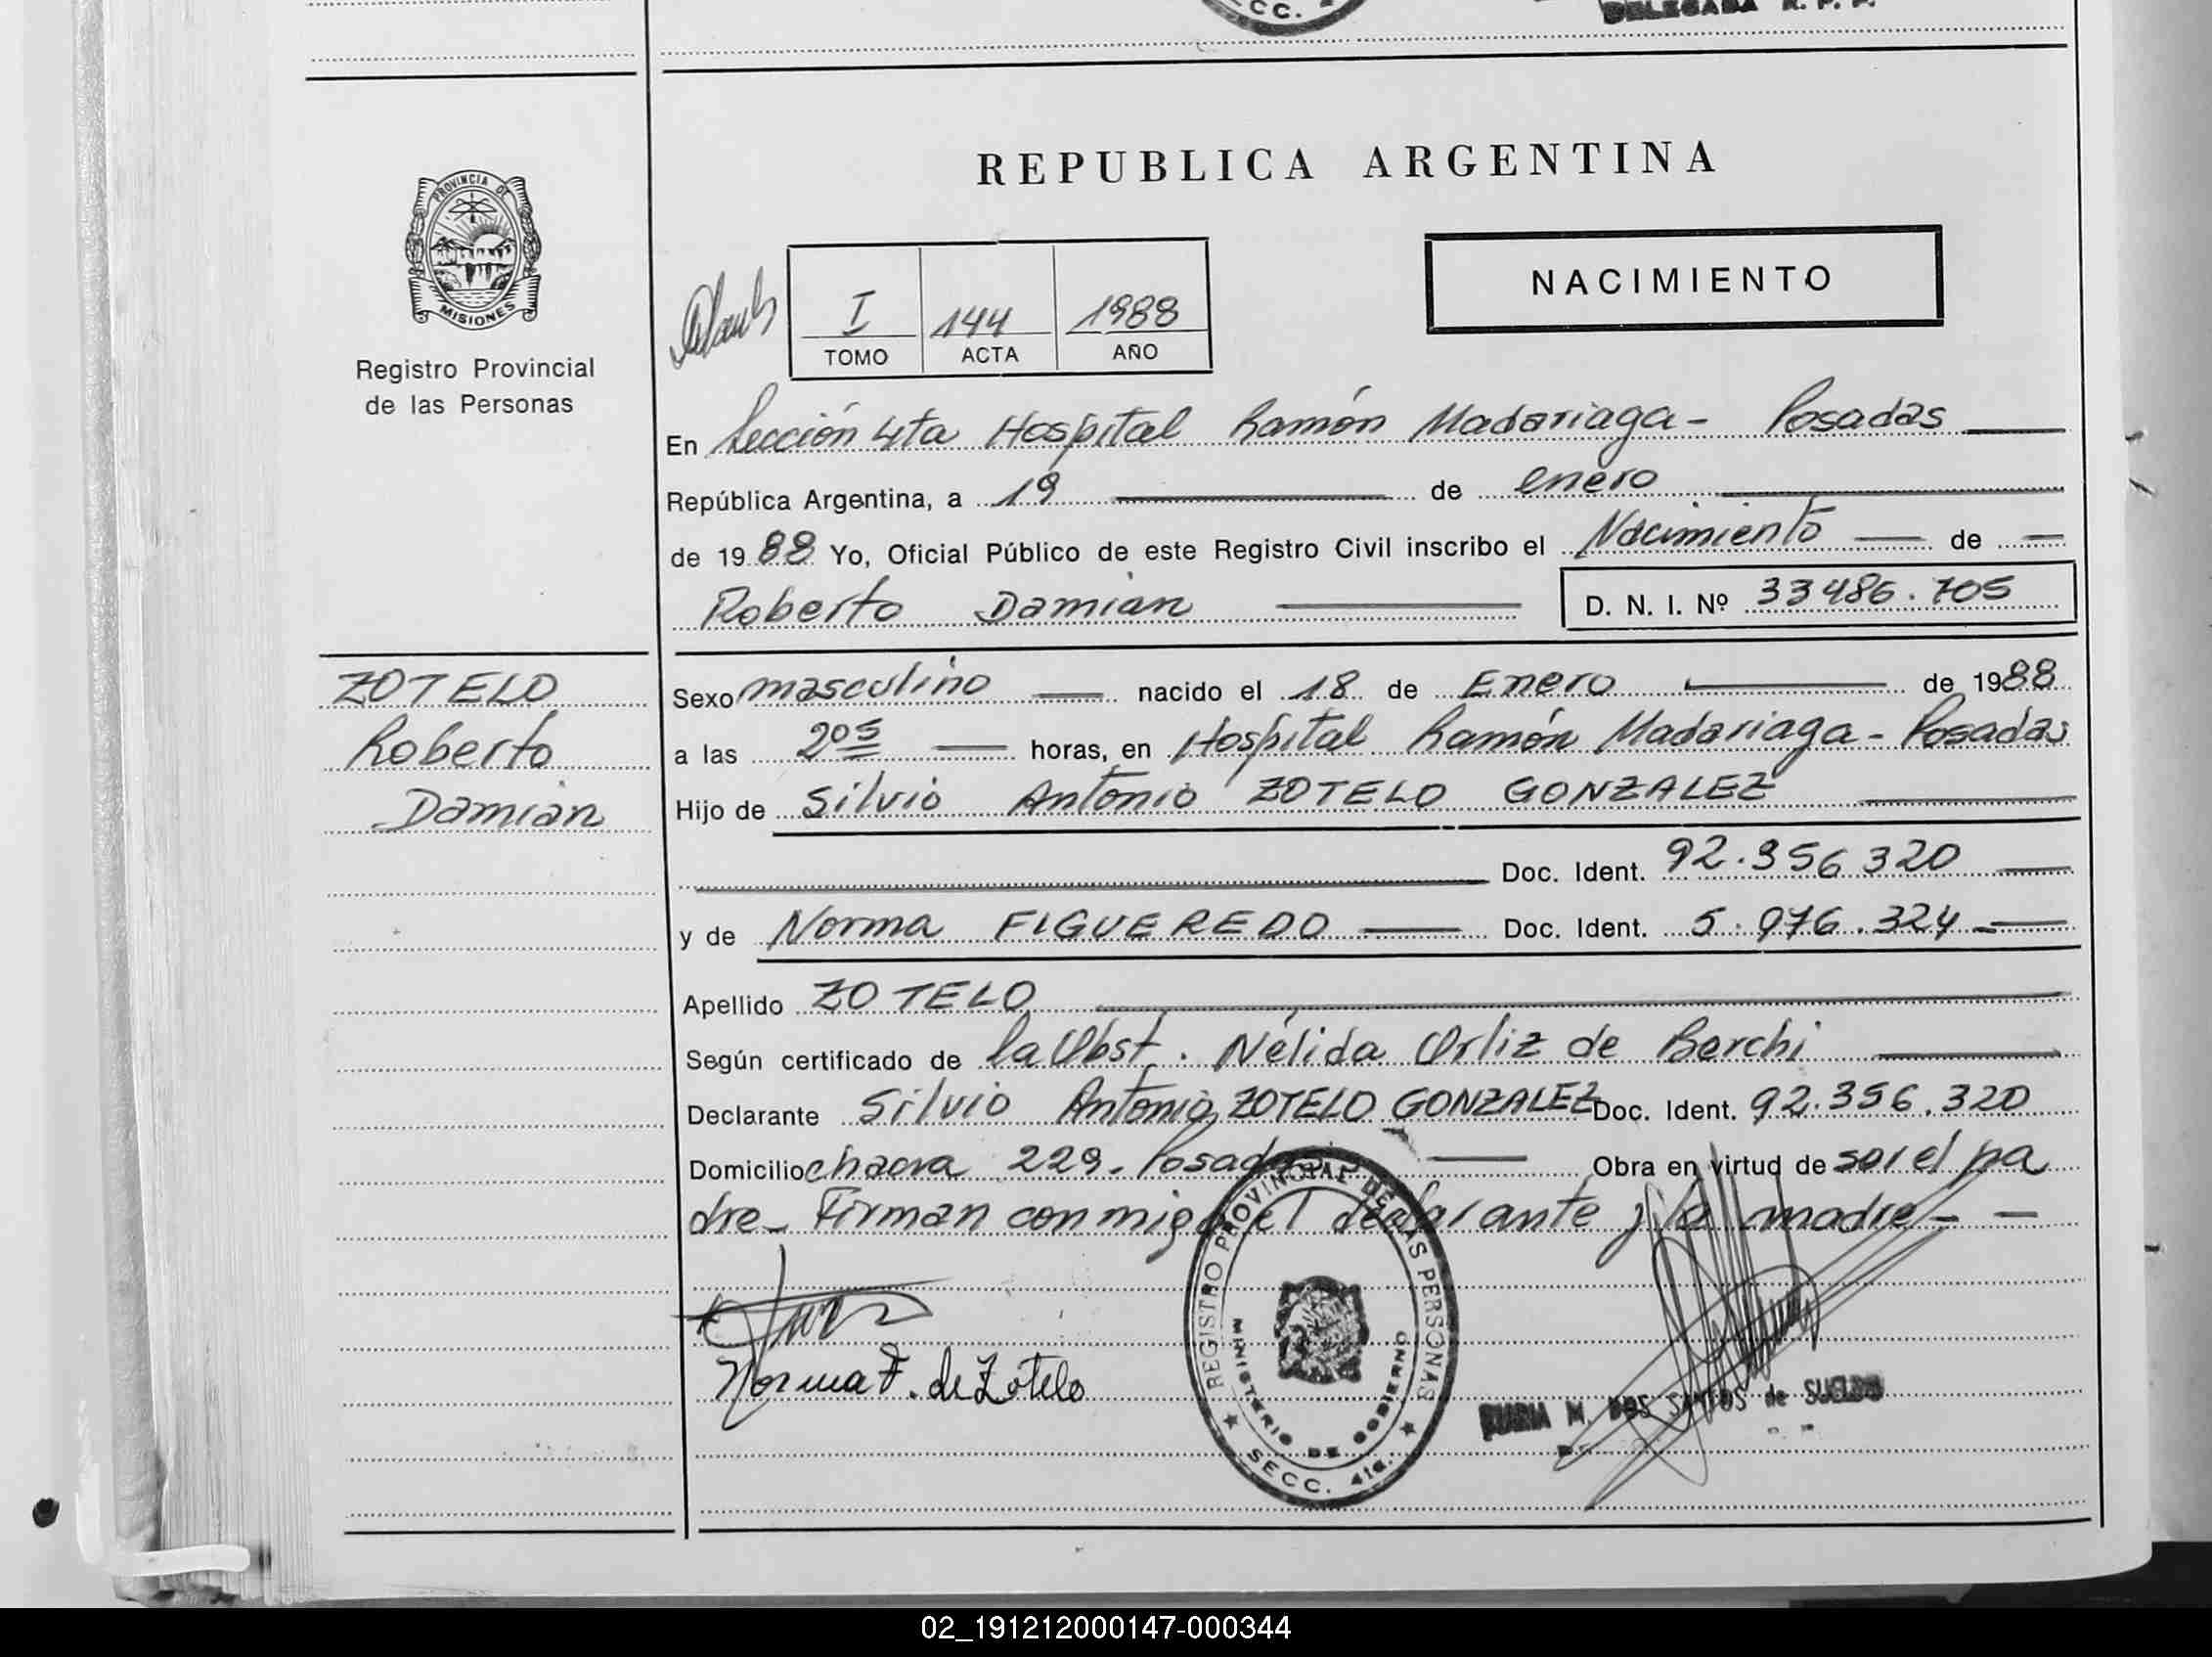 CC.
DELEGADA R. P. P.
PROVINCIA DE
MISIONES
Registro Provincial
de las Personas
REPUBLICA ARGENTINA
NACIMIENTO
I 144 1988
TOMO ACTA AÑO
En Sección 4ta Hospital Ramón Madariaga - Posadas
República Argentina, a 19 de enero
de 1988 Yo, Oficial Público de este Registro Civil inscribo el Nacimiento de
Roberto Damián D. N. I. Nº 33486.705
ZOTELO
Roberto
Damián
Sexo masculino nacido el 18 de Enero de 1988
a las 20⁵ horas, en Hospital Ramón Madariaga - Posadas
Hijo de Silvio Antonio ZOTELO GONZALEZ
Doc. Ident. 92.356320
y de Norma FIGUEREDO Doc. Ident. 5.076.324
Apellido ZOTELO
Según certificado de la Obst. Nélida Ortiz de Berchi
Declarante Silvio Antonio ZOTELO GONZALEZ Doc. Ident. 92.356.320
Domicilio chacra 229. Posadas Obra en virtud de ser el pa
dre - Firman conmigo el declarante y la madre - -
Norma F. de Zotelo
REGISTRO PROVINCIAL DE LAS PERSONAS
MINISTERIO DE GOBIERNO
SECC. 4ta.
M. DOS SANTOS de SUELDO
02_191212000147-000344